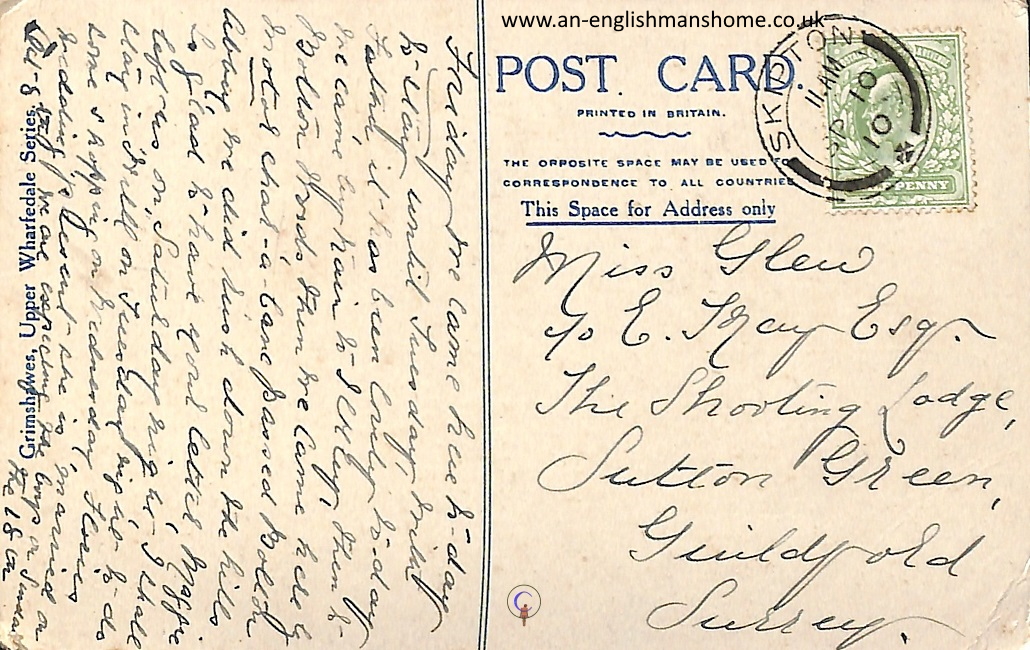 www.an-englishmanshome.co.uk
POST CARD.
PRINTED IN BRITAIN.
THE OPPOSITE SPACE MAY BE USED FOR
CORRESPONDENCE TO ALL COUNTRIES
This Space for Address only
SKIPTON
11 AM
SP 10
10
PENNY
Miss Glew
c/o E. Kay Esq.
The Shooting Lodge,
Sutton Green,
Guildford
Surrey.
Friday We came here to-day
to stay until Tuesday, with
Father it has been lovely to-day
we came by train to Ilkley, then to
Bolton Woods then we came here by
motor char-a-banc passed Bolton
Abbey we did rush down the hills
So glad to have your letter Maggie
left us on Saturday night I shall
stay in on Tuesday night to do
some shopping on Wednesday
wedding present she is married on
we are expecting the boys on Sunday
the 18th
Grimshawes, Upper Wharfedale Series.